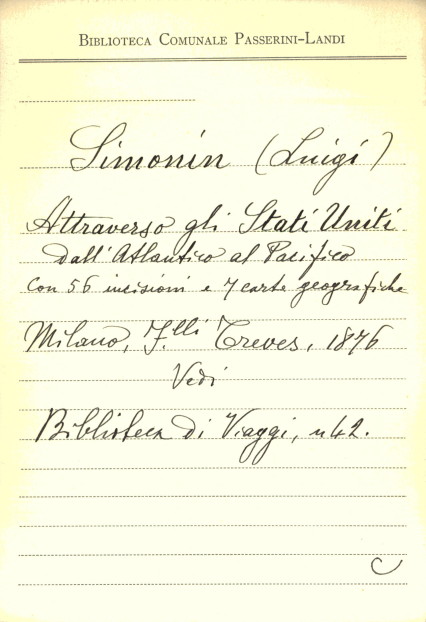 BIBLIOTECA COMUNALE PASSERINI-LANDI
Simonin (Luigi)
Attraverso gli Stati Uniti
dall'Atlantico al Pacifico
con 56 incisioni e 7 carte geografiche
Milano, F.lli Treves, 1876
Vedi
Biblioteca di Viaggi, n 42.
C